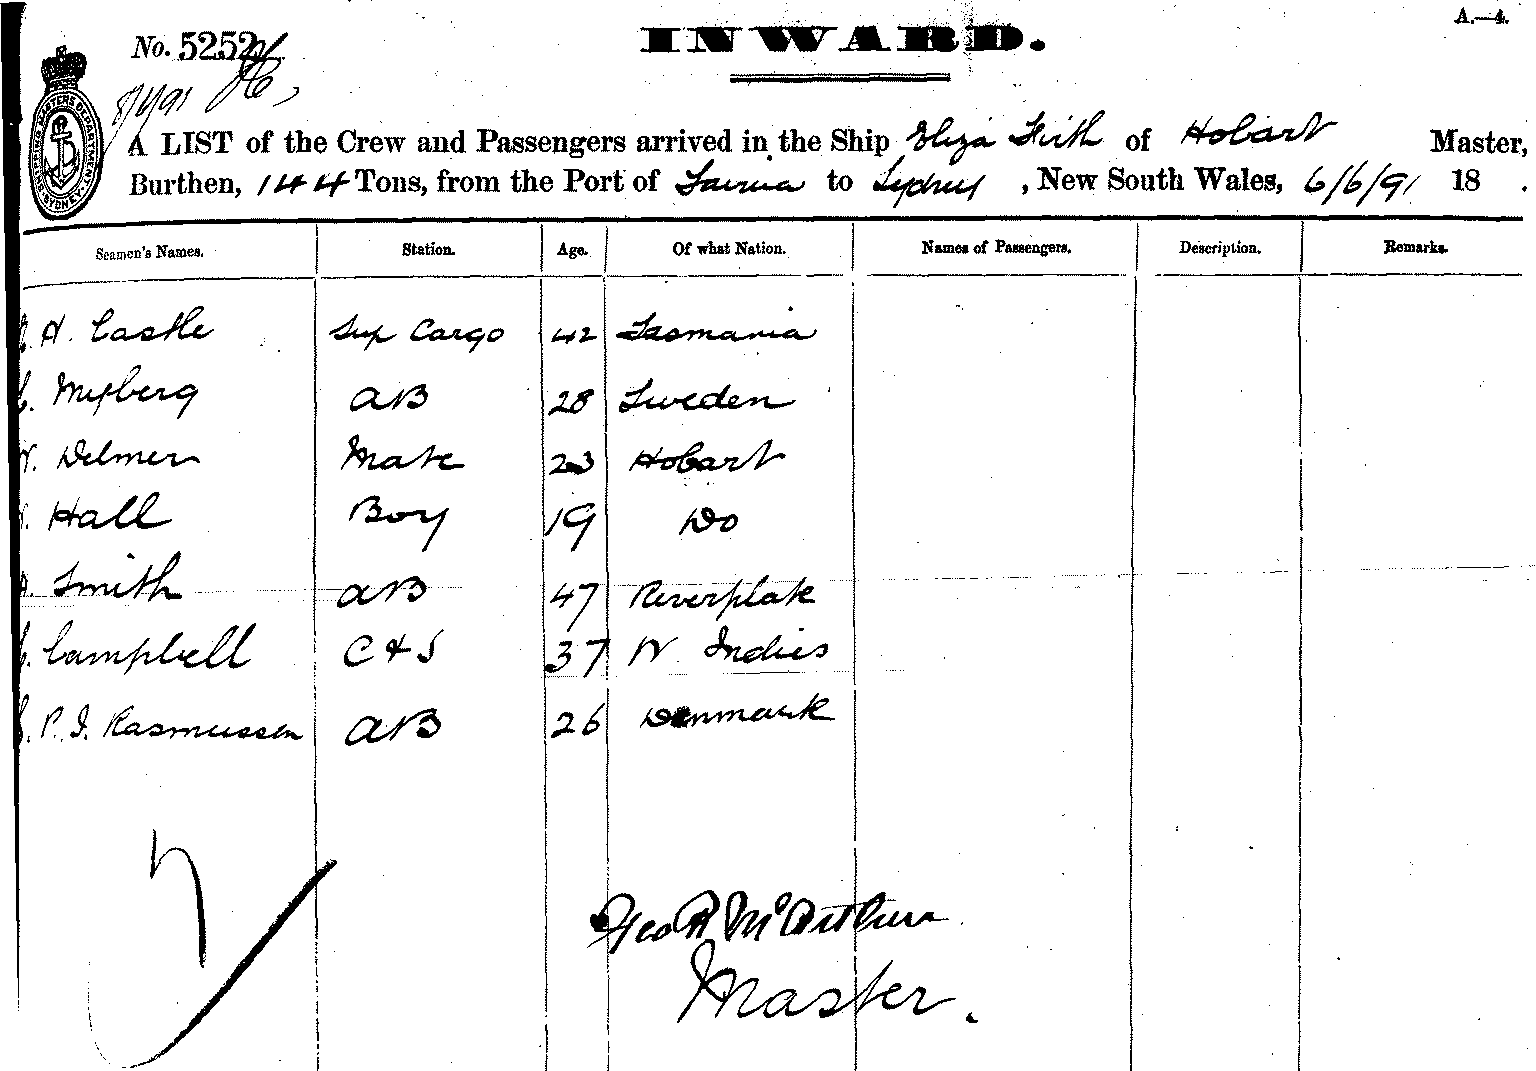 A.—4.
No. 5252
INWARD.
SHIPPING MASTERS DEPARTMENT SYDNEY
A LIST of the Crew and Passengers arrived in the Ship Eliza Firth of Hobart Master,
Burthen, 144 Tons, from the Port of to Sydney, New South Wales, 6/6/91 18 .
Seamen's Names. Station. Age. Of what Nation. Names of Passengers. Description. Remarks.
H. Castle Sup Cargo 42 Tasmania
AB 28 Sweden
Delmer Mate 23 Hobart
Hall Boy 19 Do
Smith AB 47 Riverplate
Campbell C & S 37 W Indies
P. I. Rasmussen AB 26 Denmark
7
Geo R McArthur
Master.